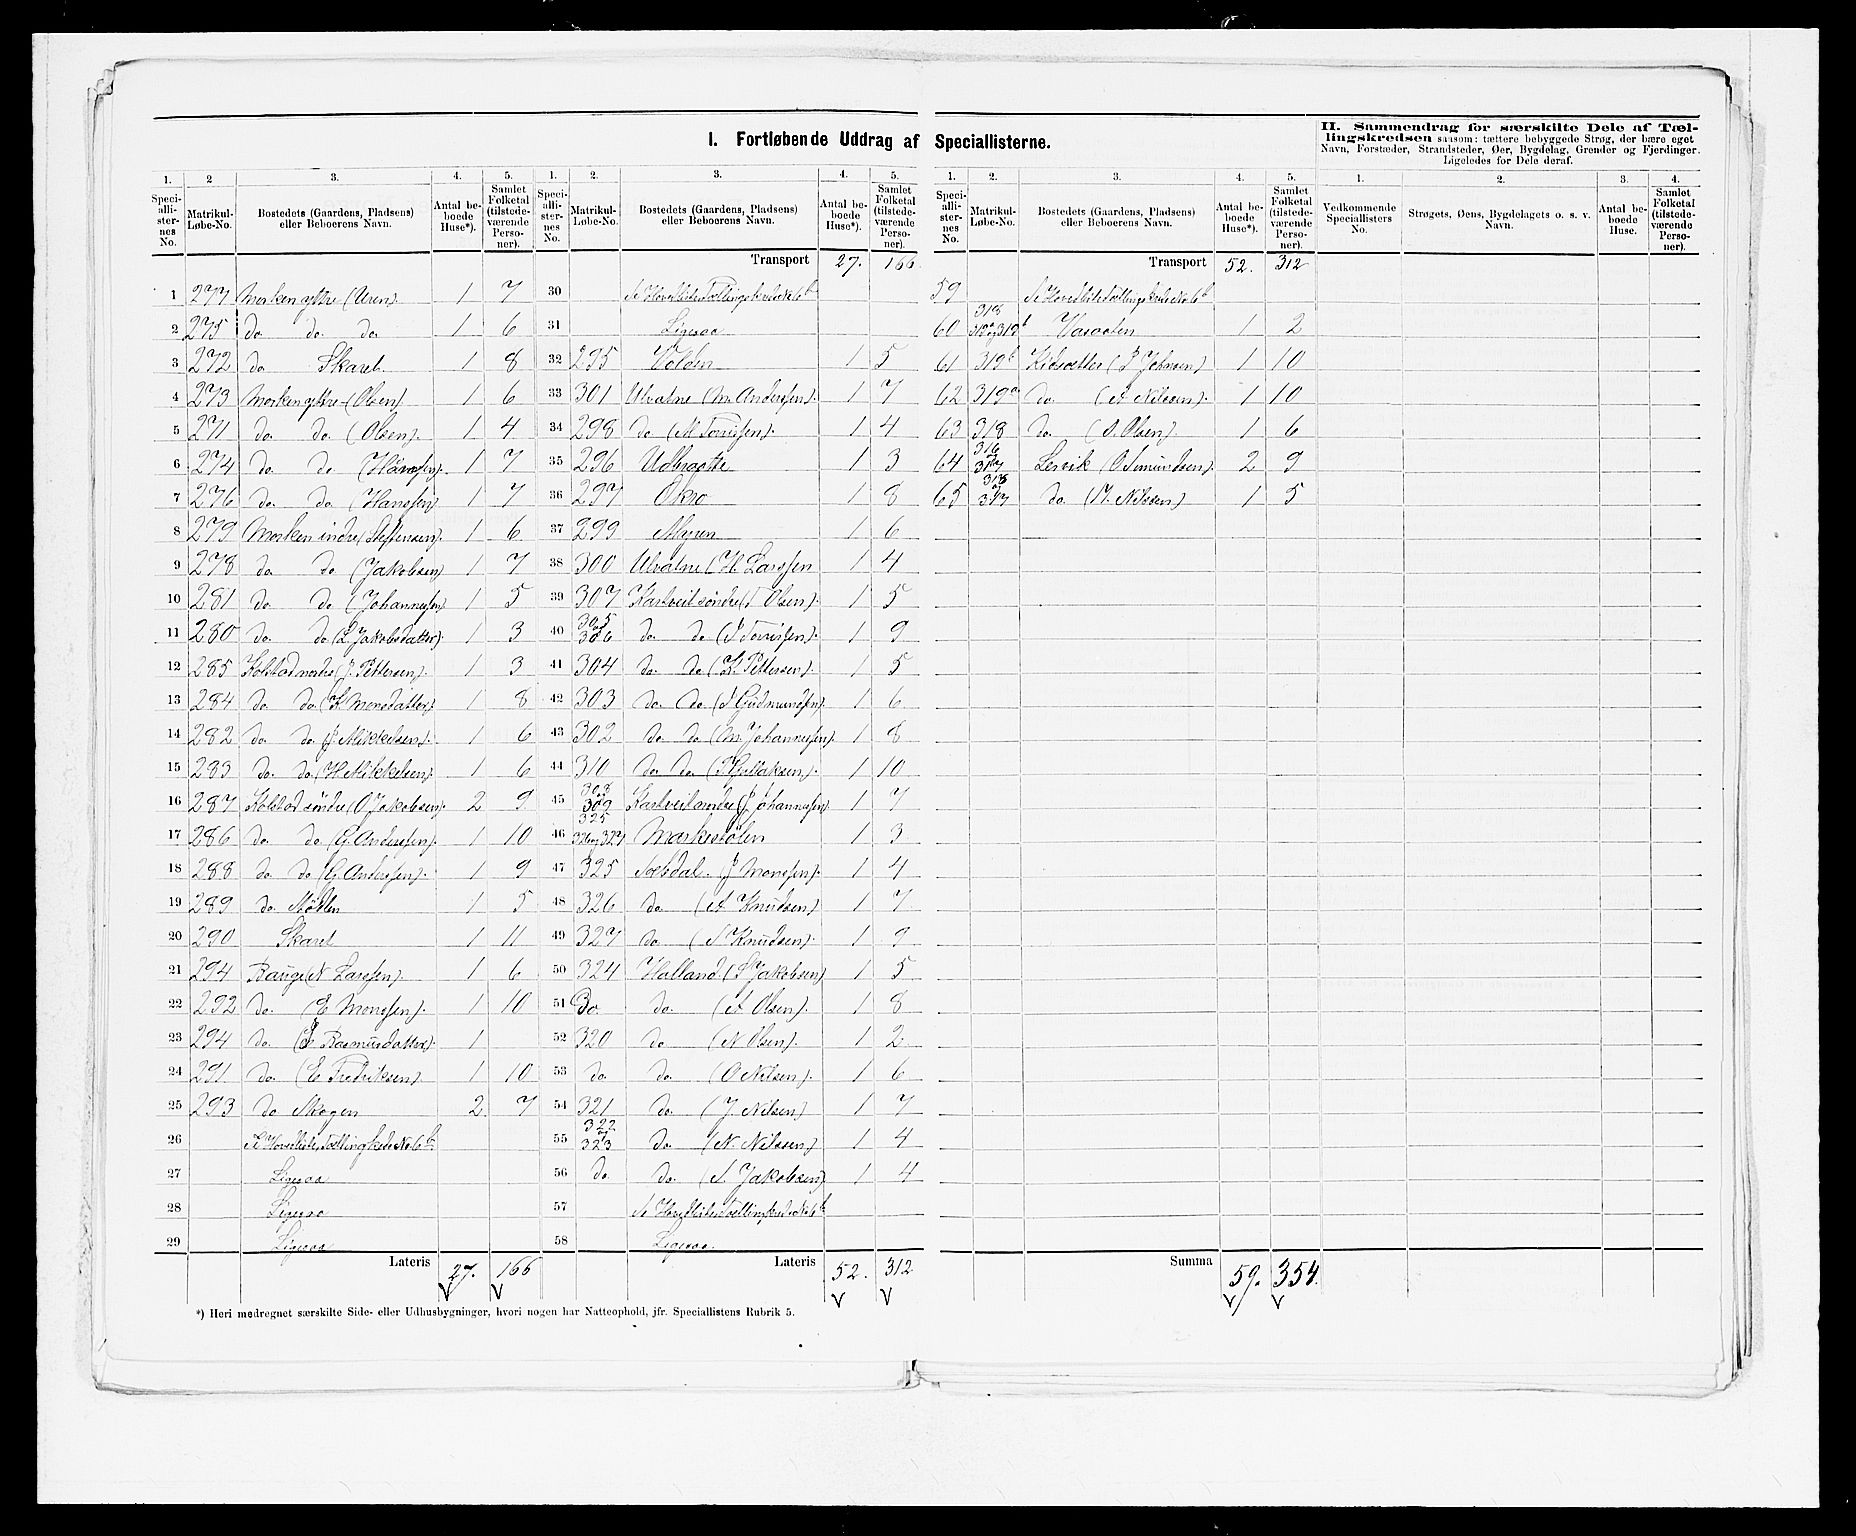 I. Fortløbende Uddrag af Speciallisterne.
II. Sammendrag for særskilte Dele af Tæl-
lingskredsen saasom: tættere bebyggede Strøg, der bære eget
Navn, Forstæder, Strandsteder, Øer, Bygdelag, Grender og Fjerdinger.
Ligeledes for Dele deraf.
1. 2 3. 4. 5. 1. 2. 3. 4. 5. 1. 2. 3. 4. 5. 1. 2. 3. 4.
Speciallisternes No. Matrikul-Løbe-No. Bostedets (Gaardens, Pladsens) eller Beboerens Navn. Antal beboede Huse*). Samlet Folketal (tilstedeværende Personer).
Speciallisternes No. Matrikul-Løbe-No. Bostedets (Gaardens, Pladsens) eller Beboerens Navn. Antal beboede Huse*). Samlet Folketal (tilstedeværende Personer).
Speciallisternes No. Matrikul-Løbe-No. Bostedets (Gaardens, Pladsens) eller Beboerens Navn. Antal beboede Huse*). Samlet Folketal (tilstedeværende Personer).
Vedkommende Speciallisters No. Strøgets, Øens, Bygdelagets o. s. v. Navn. Antal beboede Huse. Samlet Folketal (tilstedeværende Personer).
1 277 Morken ytre 1 7
2 275 do do do 1 6
3 272 do Skaret 1 8
4 273 Morken ytre (Olsen) 1 6
5 271 do. do. (Olsen). 1 4
6 274 do. do 1 7
7 276 do. do. (Hanssen) 1 7
8 279 Morken indre (Steffensen). 1 6
9 278 do do (Jakobsen) 1 7
10 281 do. do (Johannessen) 1 5
11 280 do. do (L Jakobsdatter). 1 3
12 285 Kolstad nordre (J. Pettersen). 1 3
13 284 do. do. (K Monsdatter) 1 8
14 282 do do (J. Mikkelsen). 1 6
15 283 do. do. (H Mikkelsen). 1 6
16 287 Kolstad søndre (O Jakobsen). 2 9
17 286 do. do (G. Anderssen). 1 10
18 288 do do (G. Anderssen). 1 9
19 289 do 1 5
20 290 Skaret 1 11
21 294 Bauge (N Larssen). 1 6
22 292 do. (E Monssen). 1 10
23 294 do. Rasmusdatter). 1
24 291 do. (E Fredriksen). 1 10
25 293 do Skogen 2 7
26 Se Hovedliste Tællingskreds No 6 b
27 Ligesaa
28 Ligesaa
29 Ligesaa
Lateris 27. 166
Transport 27. 166.
30 Se Hovedliste Tællingskreds No 6 b
31 Ligesaa
32 295 Volden 1 5
33 301 Ulvatne (M. Anderssen). 1 7
34 298 do 1 4
35 296 Udbraatte 1 3
36 297 Økro 1 8
37 299 Myren 1 6
38 300 Ulvatne (H. Larssen 1 4
39 307 Kartveit søndre Olsen). 1 5
40 305 og 306 do do 1 9
41 304 do do Pettersen). 1 5
42 303 do. do Gudmundsen). 1 6
43 302 do do (M. Johannessen). 1 8
44 310 do do Gullaksen). 1 10
45 308 og 309 Kartveit nordre (J. Johannessen) 1 7
46 325 326 og 327 Morkestølen 1 3
47 325 Sætdal. Monssen). 1 4
48 326 do (A Knudsen) 1 7
49 327 do Knudsen). 1 9
50 324 Halland. Jakobsen) 1 5
51 do. do. (A Olsen). 1 8
52 320 do (N Olsen). 1 2
53 do do. (O Nilsen). 1 6
54 321 do. (J. Nilsen) 1 7
55 322 og 323 do. (N. Nilssen) 1 4
56 do. do. Jakobsen) 1 4
57 Se Hovedliste Tællingskreds No 6 b
58 Ligesaa.
Lateris 52. 312
Transport 52. 312
59 Se Hovedliste Tællingskreds No 6 b
60 318 319 a og 319 b 1 2
61 319 b Johnsen) 1 10
62 319 a do. (A Nilssen). 1 10
63 318 do. Olsen). 1 6
64 316 og 317 Lervik (O Simundsen). 2 9
65 316 og 317 do Nilssen) 1 5
Summa 59. 354.
*) Heri medregnet særskilte Side- eller Udhusbygninger, hvori nogen har Natteophold, jfr. Speciallistens Rubrik 5.